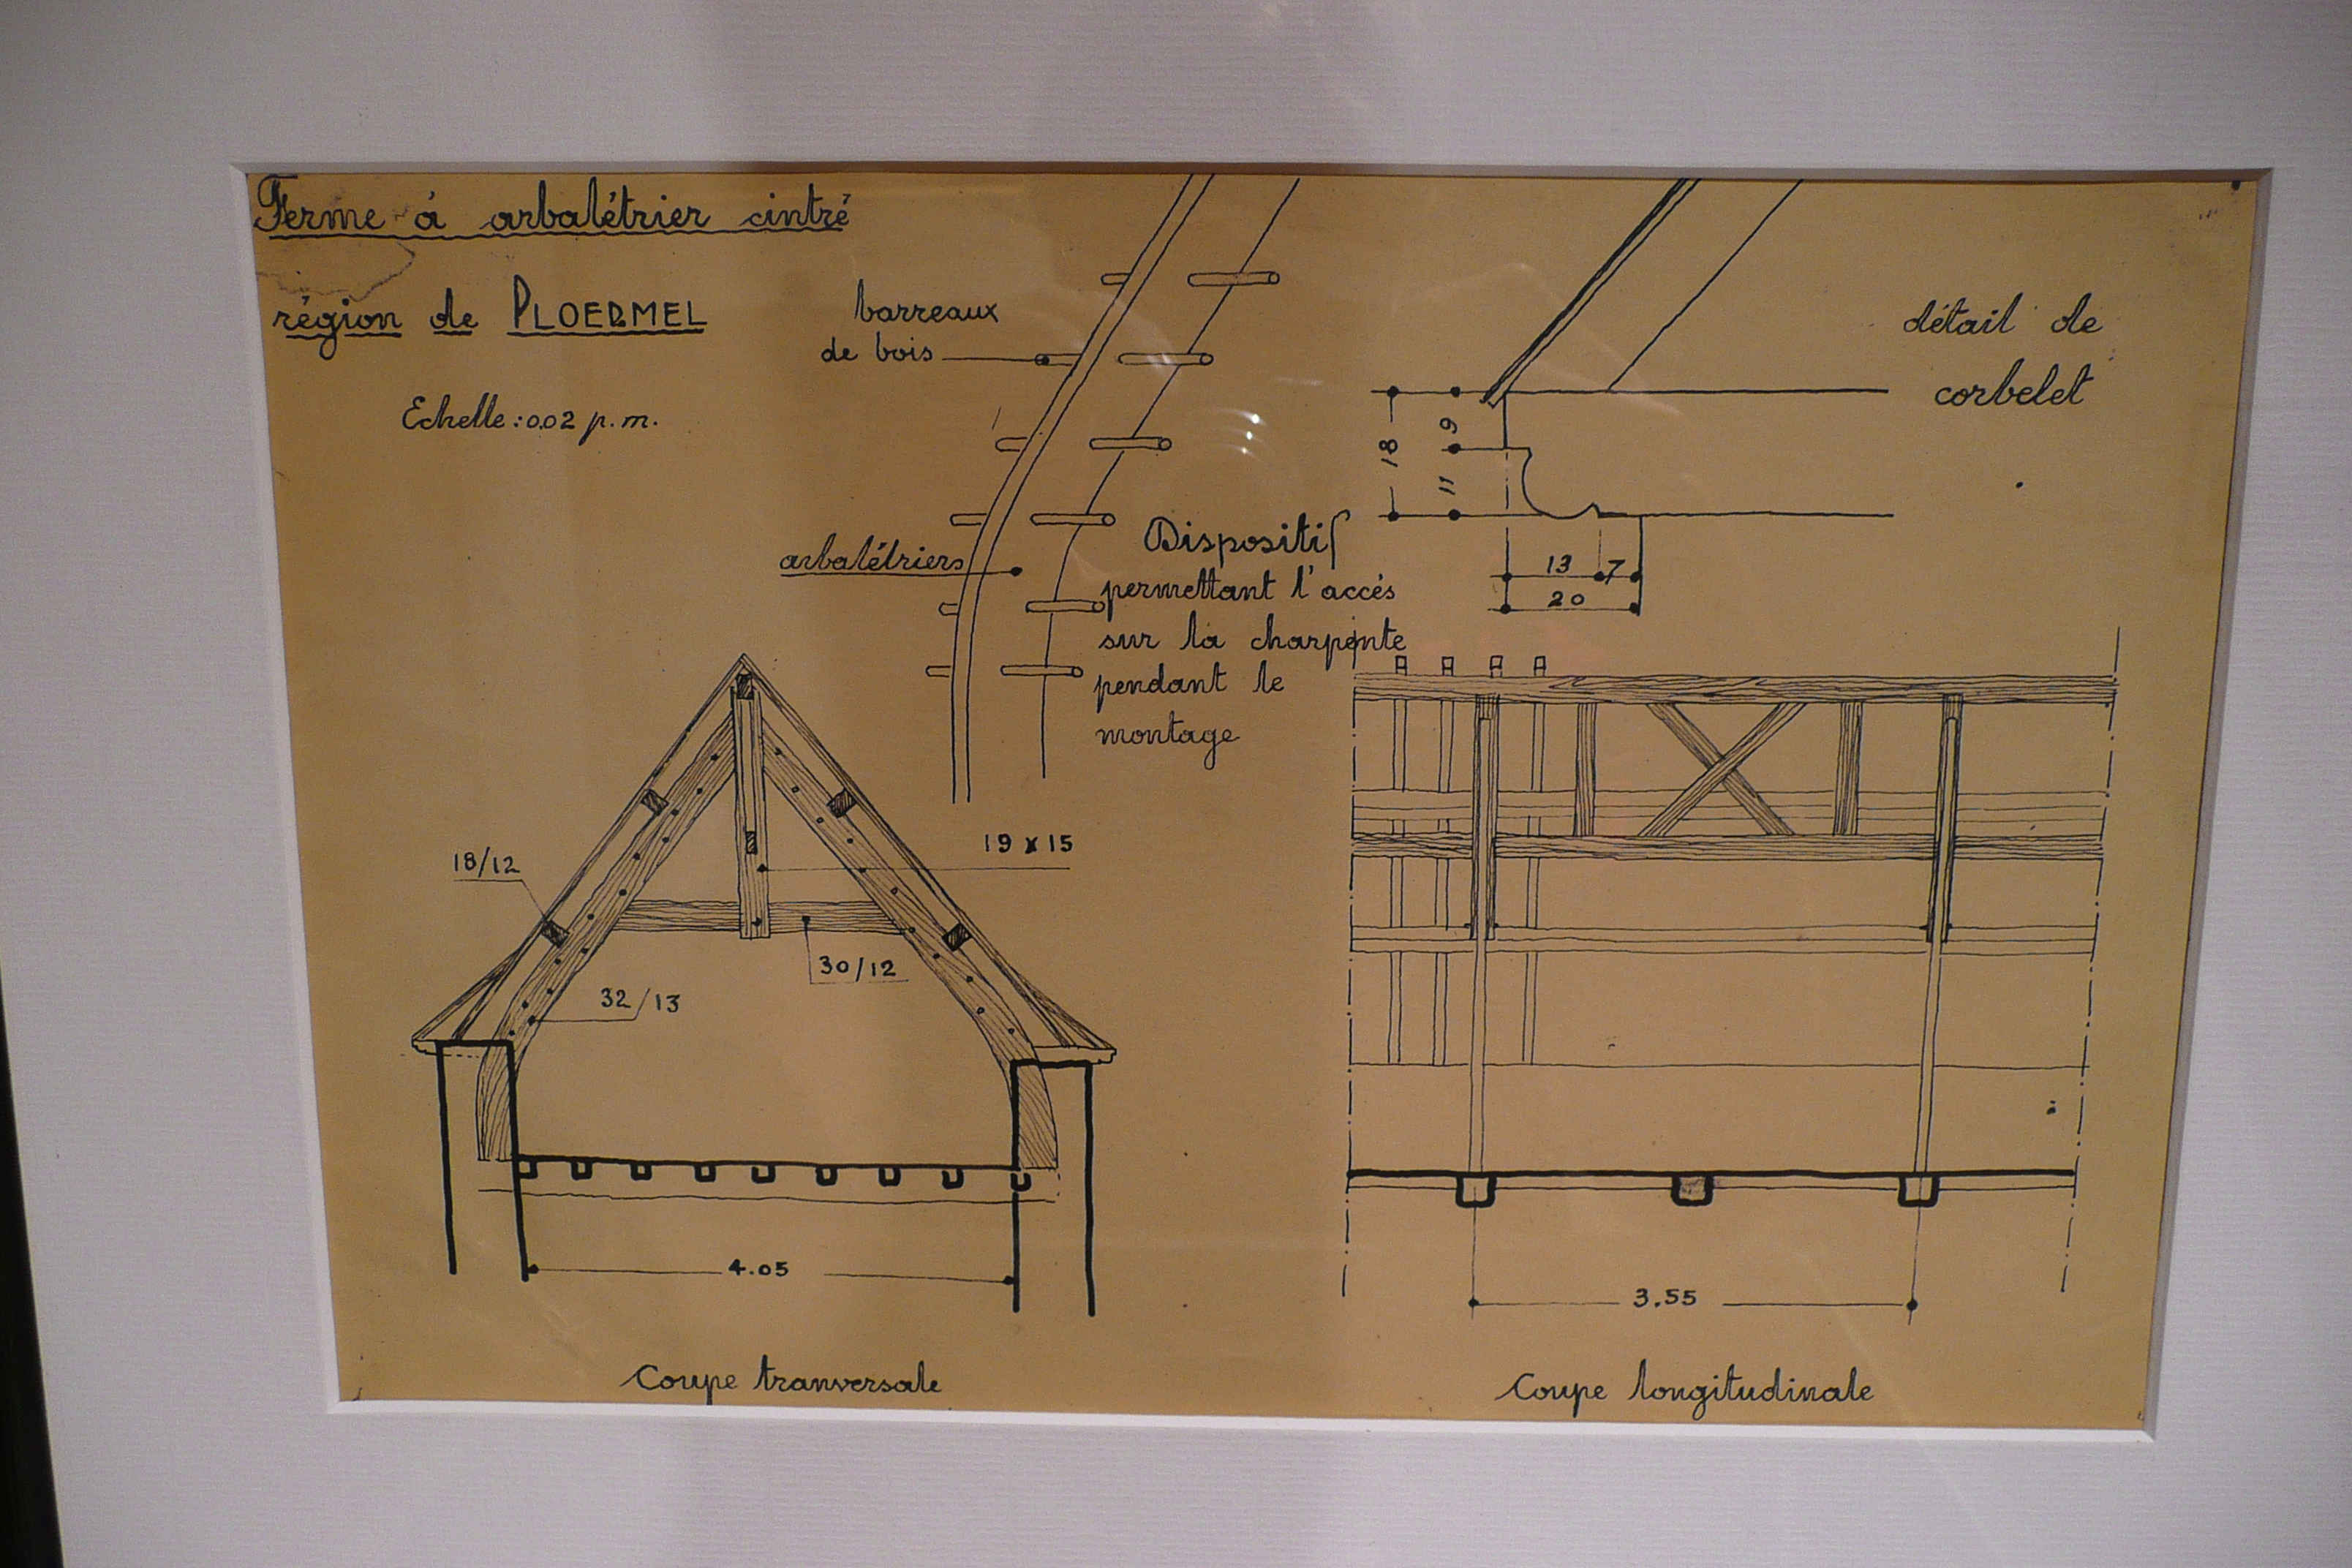 Ferme à arbalétrier cintré
région de PLOERMEL
Echelle : 0.02 p. m.
barreaux
de bois
arbalétriers
Dispositif
permettant l'accés
sur la charpente
pendant le
montage
détail de
corbelet
18
9
11
13
7
20
18/12
19 x 15
30/12
32/13
4.05
3.55
Coupe tranversale
Coupe longitudinale